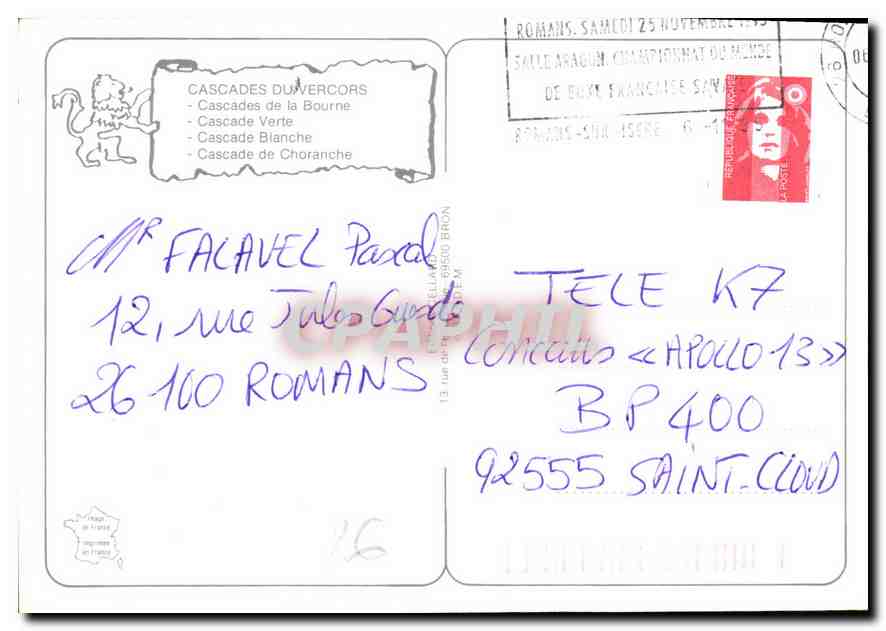 CASCADES DU VERCORS
- Cascades de la Bourne
- Cascade Verte
- Cascade Blanche
- Cascade de Choranche
Mr FALAVEL Pascal
12, rue Jules Guesde
26100 ROMANS
Image
de France
imprimée
en France
26
13, rue de 69500 BRION
CPAPHIL
ROMANS. SAMEDI 25 NOVEMBRE
SALLE ARAGON. CHAMPIONNAT DU MONDE
DE BOXE FRANCAISE SAVATE
ROMANS-SUR-ISERE 6
RÉPUBLIQUE FRANÇAISE
LA POSTE
TELE K7
Concours «APOLLO 13»
BP 400
92555 SAINT-CLOUD